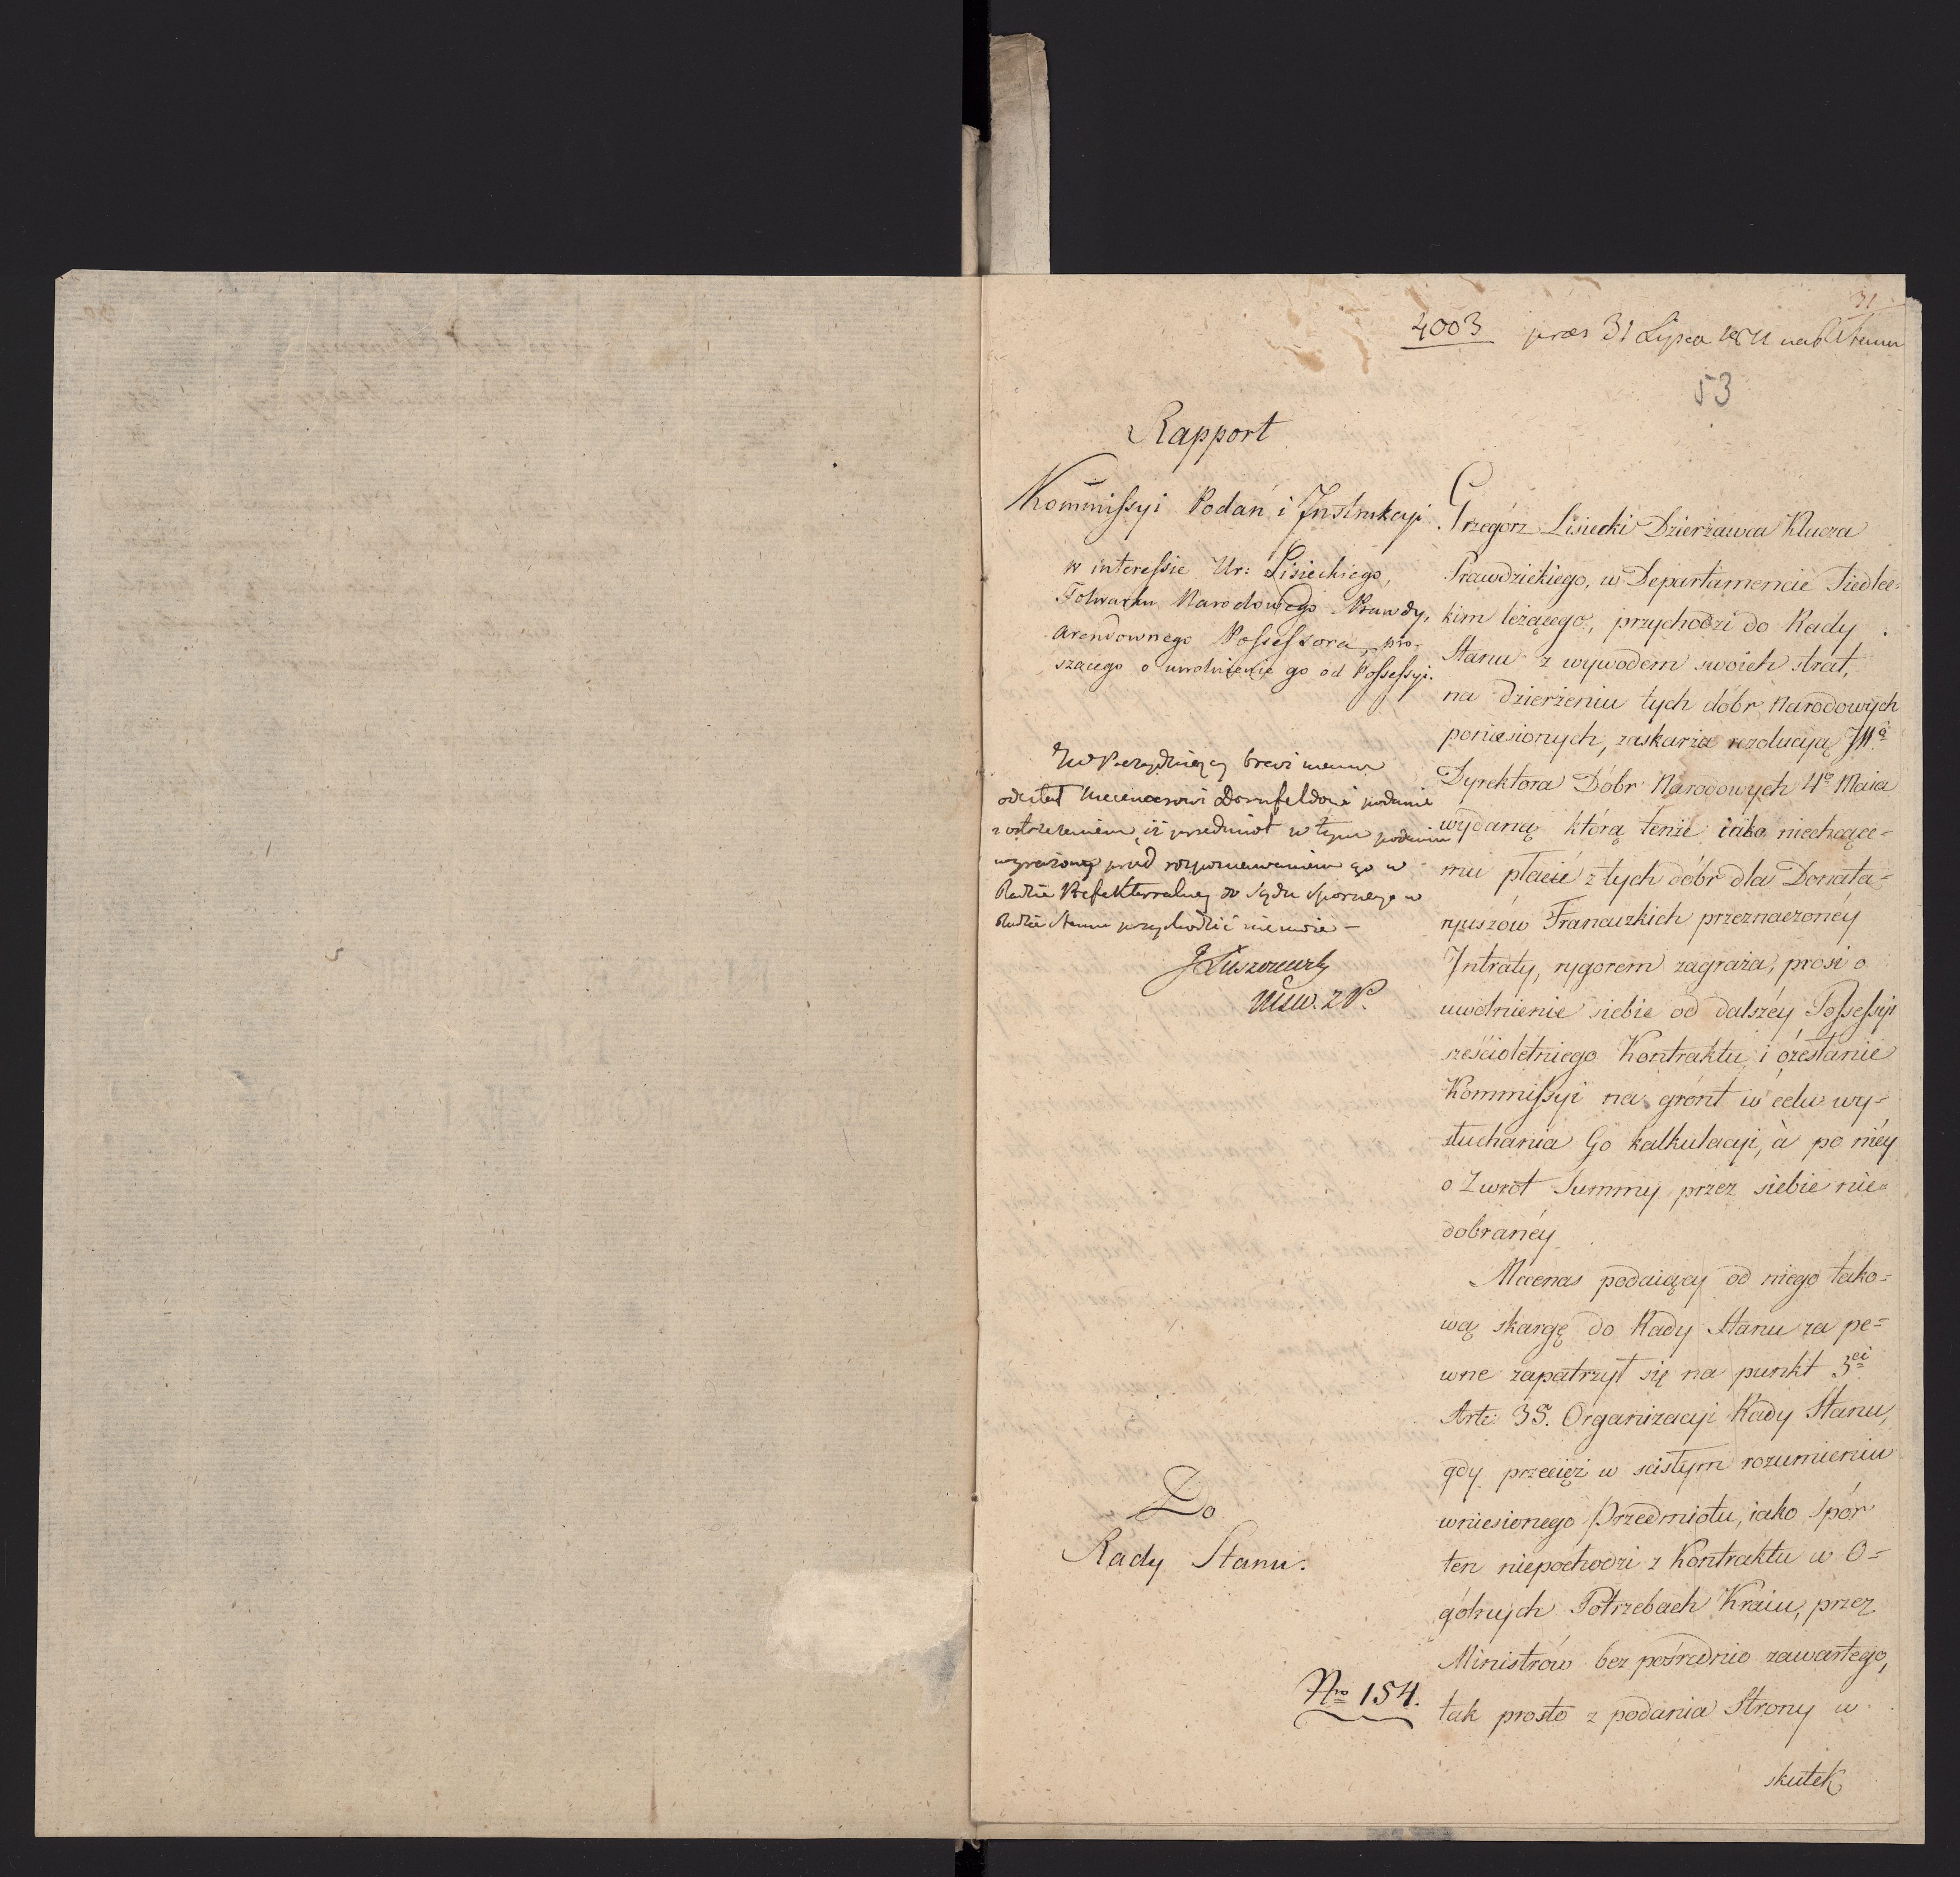 31
4003 præs 31 Lipca 1811 na R Stanu
53
Rapport
Kommissyi Podań i Instrukcyi
w interessie Ur: Lisieckiego,
Folwarku Narodowego Prawdy,
Arendownego Possessora, pro-
szącego o uwolnienie go od Possessyi.
brevi manu
odesłał Mecenasowi Dornfeldowi podanie
z ostrzeżeniem, iż przedmiot w tym podaniu
wyrażony przed rozpoznawaniem go w
Radzie Prefekturalney do Sądu spornego w
Radzie Stanu przychodzić nie może –
Do
Rady Stanu.
Nro 154.
Grzegórz Lisiecki Dzierżawca Klucza
Prawdzickiego, w Departamencie Siedlec=
kim leżącego, przychodzi do Rady
Stanu z wywodem swoich strat,
na dzierżeniu tych dóbr Narodowych
poniesionych, zaskarża rezolucyą JWo
Dyrektora Dóbr Narodowych 4o Maia
wydaną którą tenże iako niechcące=
mu płacić z tych dóbr dla Donata=
ryuszów Francuzkich przeznaczonéy
Intraty, rygorem zagraża, prosi o
uwolnienie siebie od dalszéy Possessyi
sześcioletniego Kontraktu i o zesłanie
Kommissyi na grónt w celu wy=
słuchania Go kalkulacyi, à po niéy
o Zwrot Summy przez siebie nie=
dobranéy
Mecenas podaiący od niego tako=
wą skargę do Rady Stanu za pe=
wne zapatrzył się na punkt 3ci
Arte: 35. Organizacyi Rady Stanu,
gdy przecięż w scisłym rozumieniu
wniesionego Przedmiotu, iako Spór
ten niepochodzi z Kontraktu w O=
gólnych Potrzebach Kraiu, przez
Ministrów bez pośrednio zawartego,
tak prosto z podania Strony w
skutek